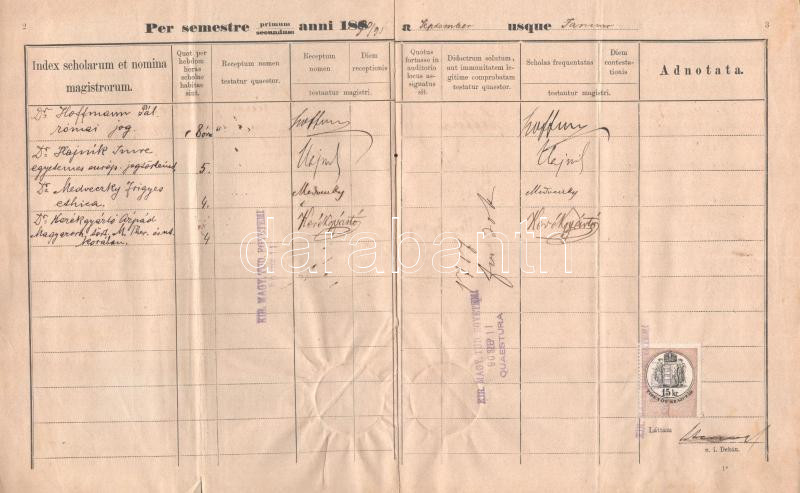 2
Per semestre primum secundum anni 188 90/91 a September usque Januar
3
Index scholarum et nomina magistrorum.
Quot per hebdom horas scholae habitae sint.
Receptum nomen
testatur quaestor.
Receptum nomen
Diem receptionis
testantur magistri.
Quotus fortasse in auditorio locus assignatus sit.
Didactrum solutum, aut immunitatem legitime comprobatam testatur quaestor.
Scholas frequentatas
Diem contestationis
testantur magistri.
Adnotata.
Dr Hoffmann Pál
római jog.
8 óra
Hoffmann
Hoffmann
Dr Hajnik Imre
egyetemes európ. jogtörténet
5.
Hajnik
Hajnik
Dr Medveczky Frigyes
ethica.
4.
Medveczky
Medveczky
Dr Kerékgyártó Árpád
Magyarorh. tört. M. Ther. és
korában.
4
Kerékgyártó
Kerékgyártó
KIR. MAGY. TUD. EGYETEMI
KIR. MAGY. TUD. EGYETEMI
90 SEP 11
QUAESTURA
darabanth
15 kr
Láttam
e. i. Dékán.
1*